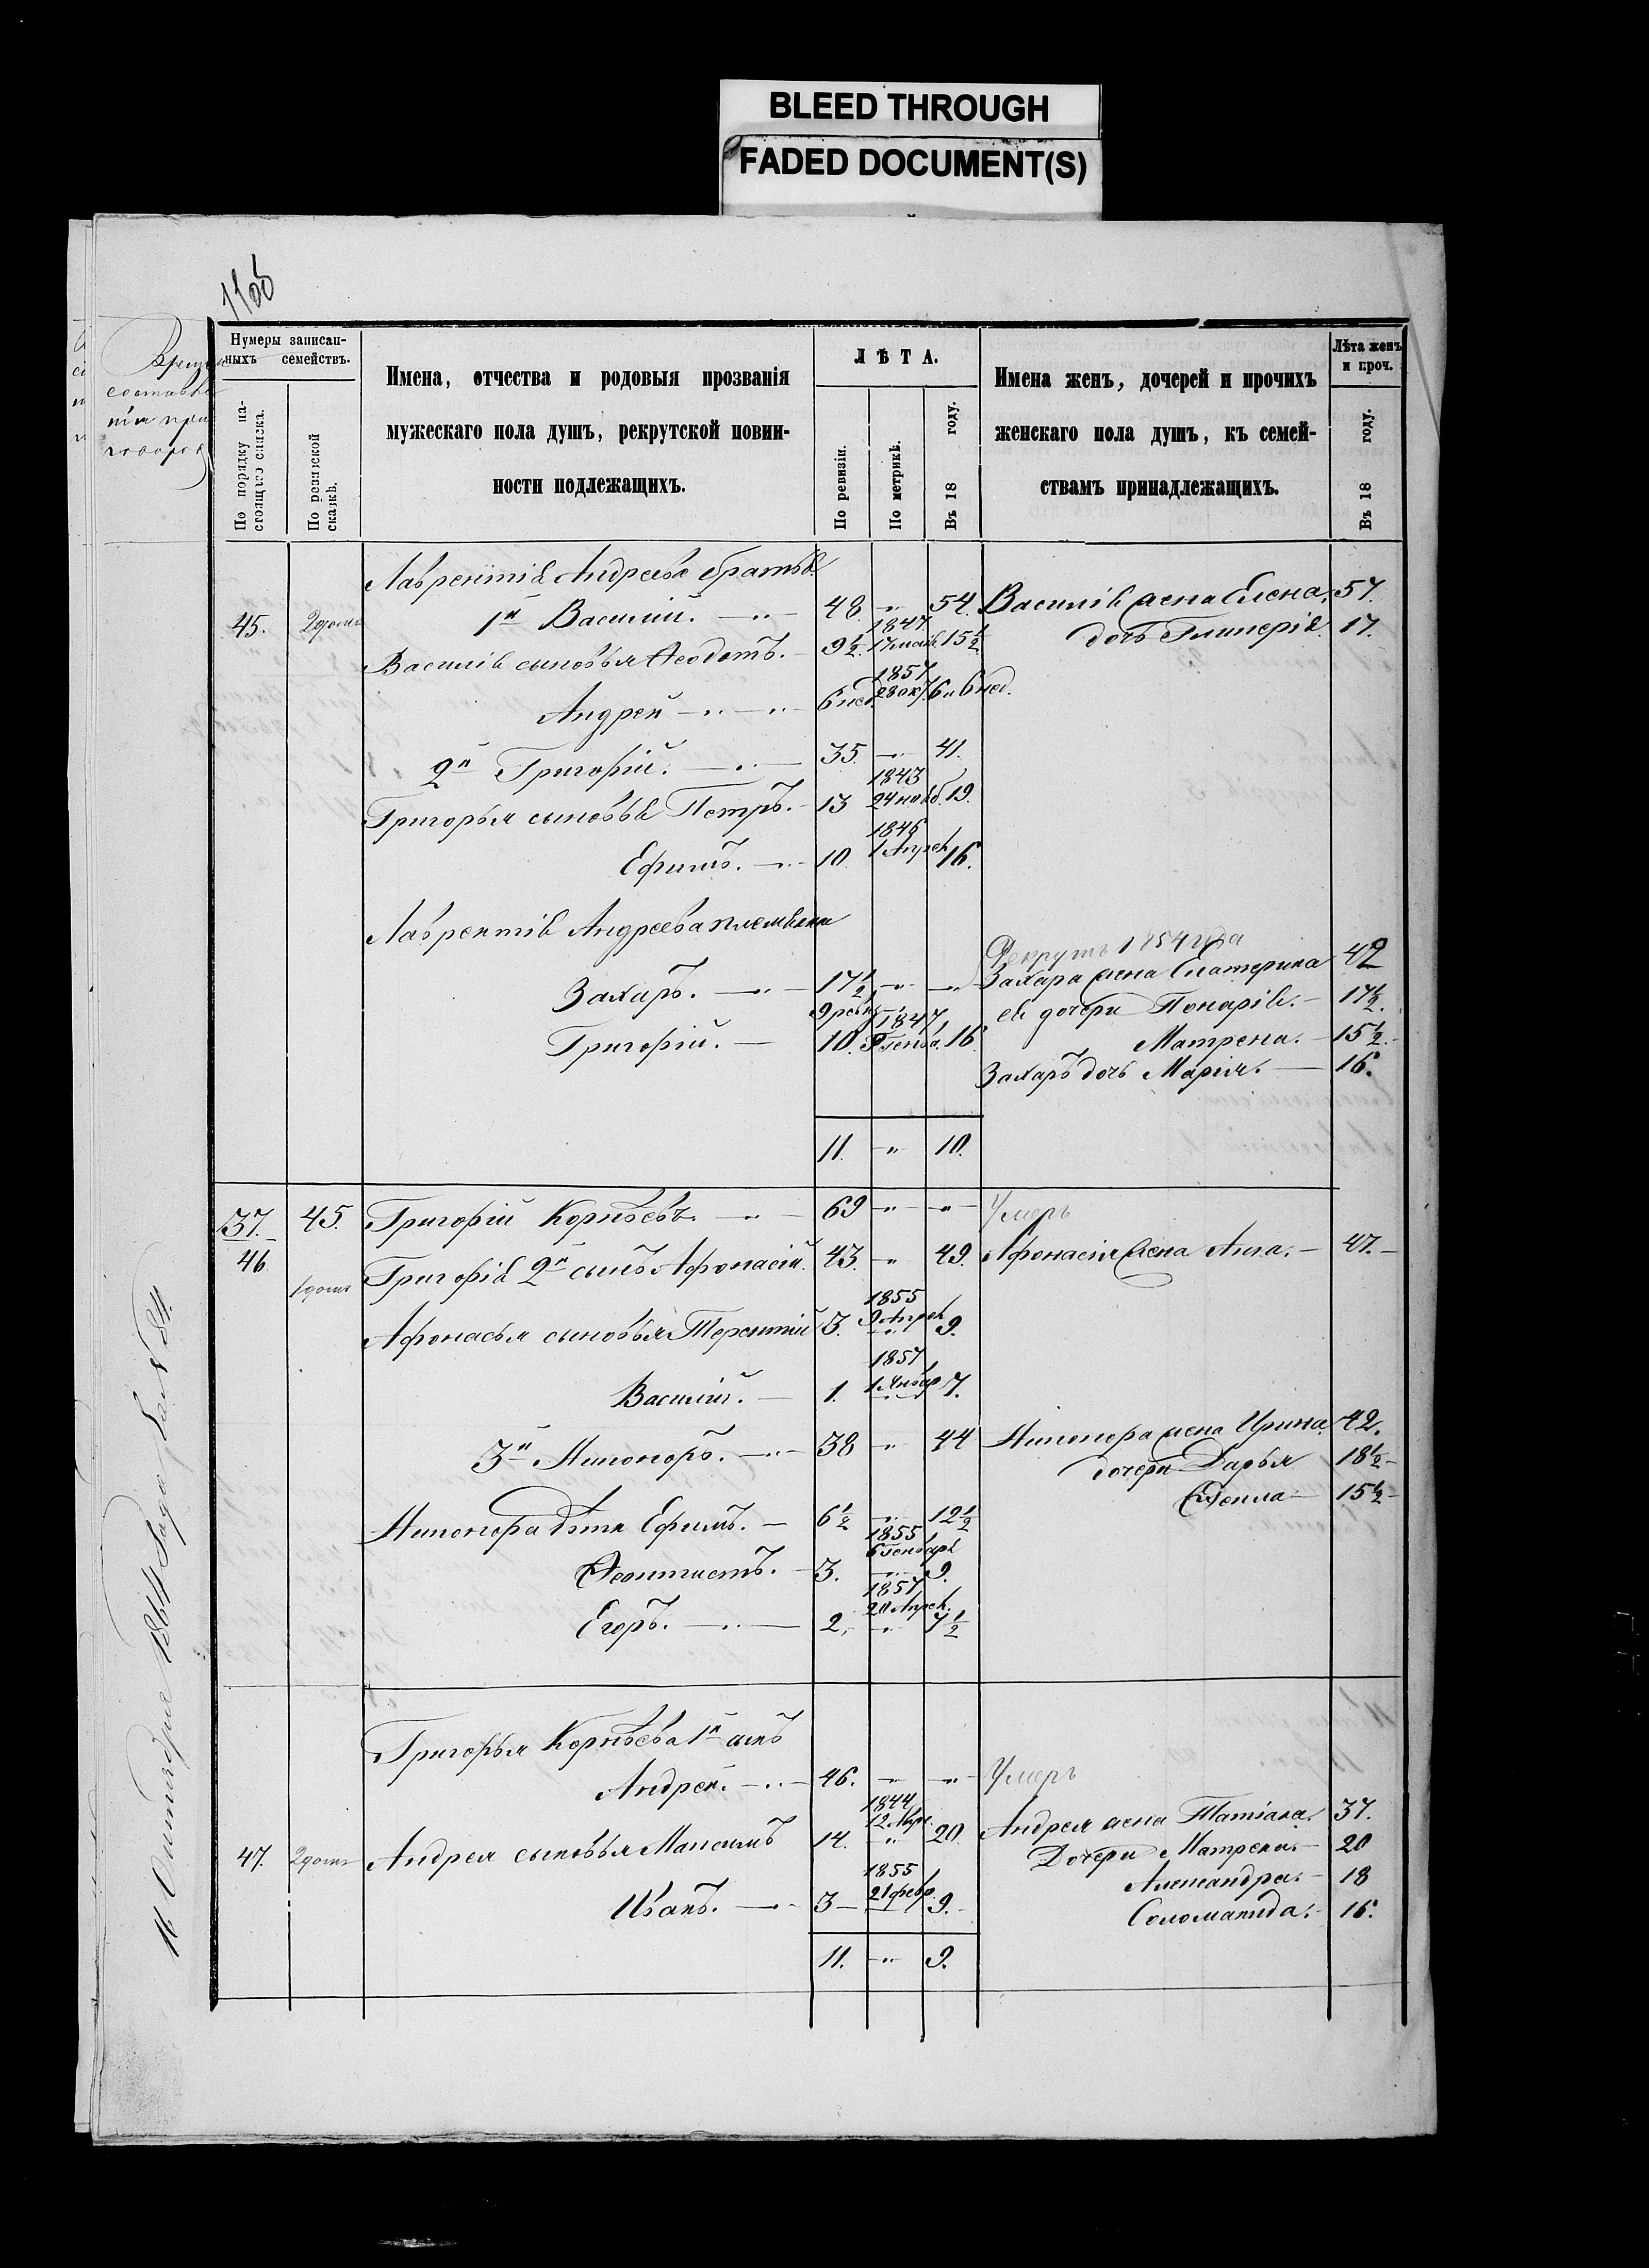 BLEED THROUGH
FADED DOCUMENT(S)
Нумеры записан-
ныхъ семействъ.
По порядку на-
стоящаго списка.
По ревизской
сказкѣ.
Имена, отчества и родовыя прозванія
мужескаго пола душъ, рекрутской повин-
ности подлежащихъ.
ЛѢТА.
По ревизіи.
По метрикѣ.
Въ 18 году.
Имена женъ, дочерей и прочихъ
женскаго пола душъ, къ семей-
ствамъ принадлежащихъ.
Лѣта женъ
и проч.
Въ 18 году.
Лаврентія Андреева братья
45. 1й Василій. 48. 54. Василія жена Елена. 57.
Василія сыновья Ѳеодотъ. 9½. 1847 17 маія 15½ дочь Гликерія. 17.
Андрей 6 нед. 1857 28 окт. 6 и 6 нед.
2й Григорій. 35. 41.
Григорья сыновья Петръ. 13 1843 24 нояб. 19.
Ефимъ. 10. 1846 1 Апрел. 16.
Лаврентія Андреева племянни
Рекрутъ 1854 года
Захаръ. 17½ Захара жена Екатерина 42
ея дочери 17½.
Григорій. 10. 1847 16. Матрена. 15½.
Захара дочь Марія. 16.
11. 10.
37. 45. Григорій Корнѣевъ. 69 Умеръ
46. Григорія 2й сынъ Афонасій. 43. 49. Афонасія жена Анна. 47.
Афонасья сыновья Терентій 3. 1855 9 Апрел 9.
Василій. 1. 1857 1 Январ 7.
3й Никоноръ. 38 44 Никонора жена Ирина. 42.
дочери Дарья 18½
15½
Никонора дѣти Ефимъ. 6½ 12½
Ѳеоктистъ. 3. 1855 6 Генваря 9.
Егоръ. 2. 1857 20 Апрел. 7½
Григорья Корнѣева 1й сынъ
Андрей. 46. Умеръ
Андрея жена Татіана. 37.
47. Андрея сыновья Максимъ 14. 1844 20. Дочери Матрена. 20
Александра. 18
Иванъ. 3 1855 21 февр. 9. Соломанида. 16.
11. 9.
16 Октября 1864 года